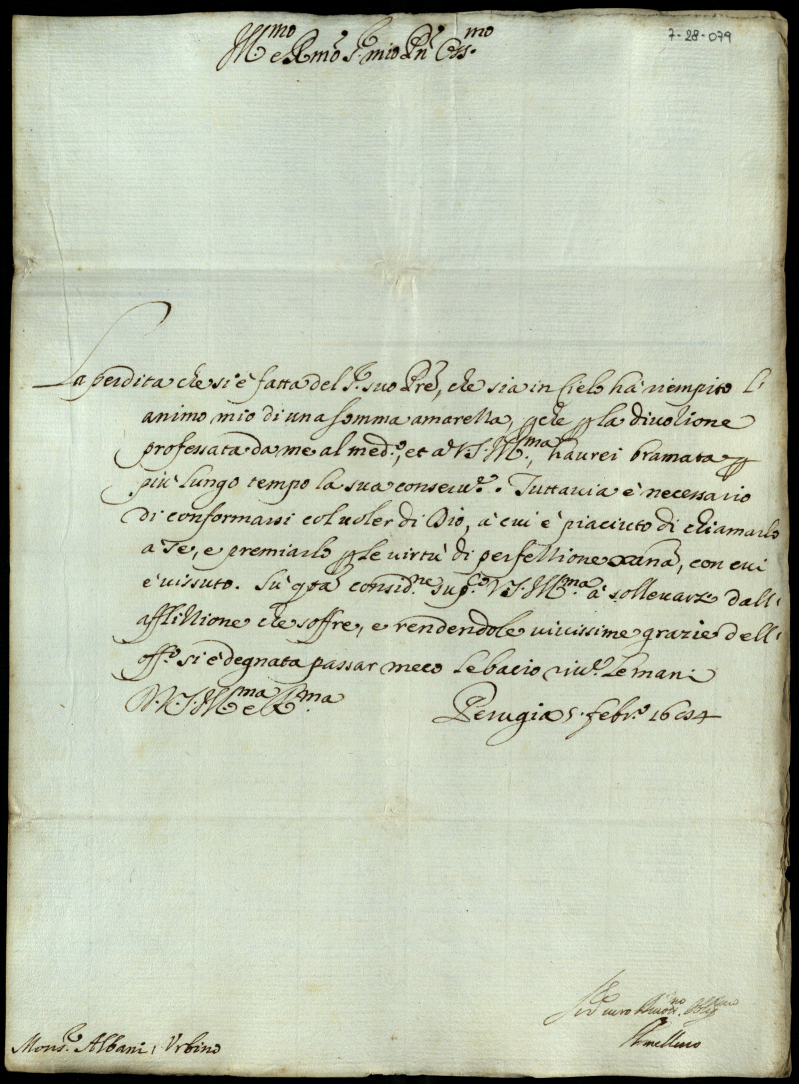 7-28-079
Ill.mo e R.mo S.r mio Pn Oss.mo
La perdita che si è fatta del S.r suo Pre, che sia in Cielo hà riempito l'
animo mio di una somma amarezza, p che p la divotione
professata da me al med.o, et a V.S. Ill.ma, haurei bramata p
più lungo tempo la sua conseru.e. Tuttauia è necessario
di conformarsi col uoler di Dio, à cui è piaciuto di chiamarlo
a se, e premiarlo p le virtù di perfettione xana, con cui
è uissuto. Sù qta consid.ne sup.co V.S. Ill.ma à solleuarsi dall'
afflittione che soffre, e rendendole uiuissime grazie dell'
off.o si è degnata passar meco le bacio riu.e le mani
D. V.S. Ill.ma e R.ma
Perugia 5. febr.o 1684
Mons.r Albani, Urbino